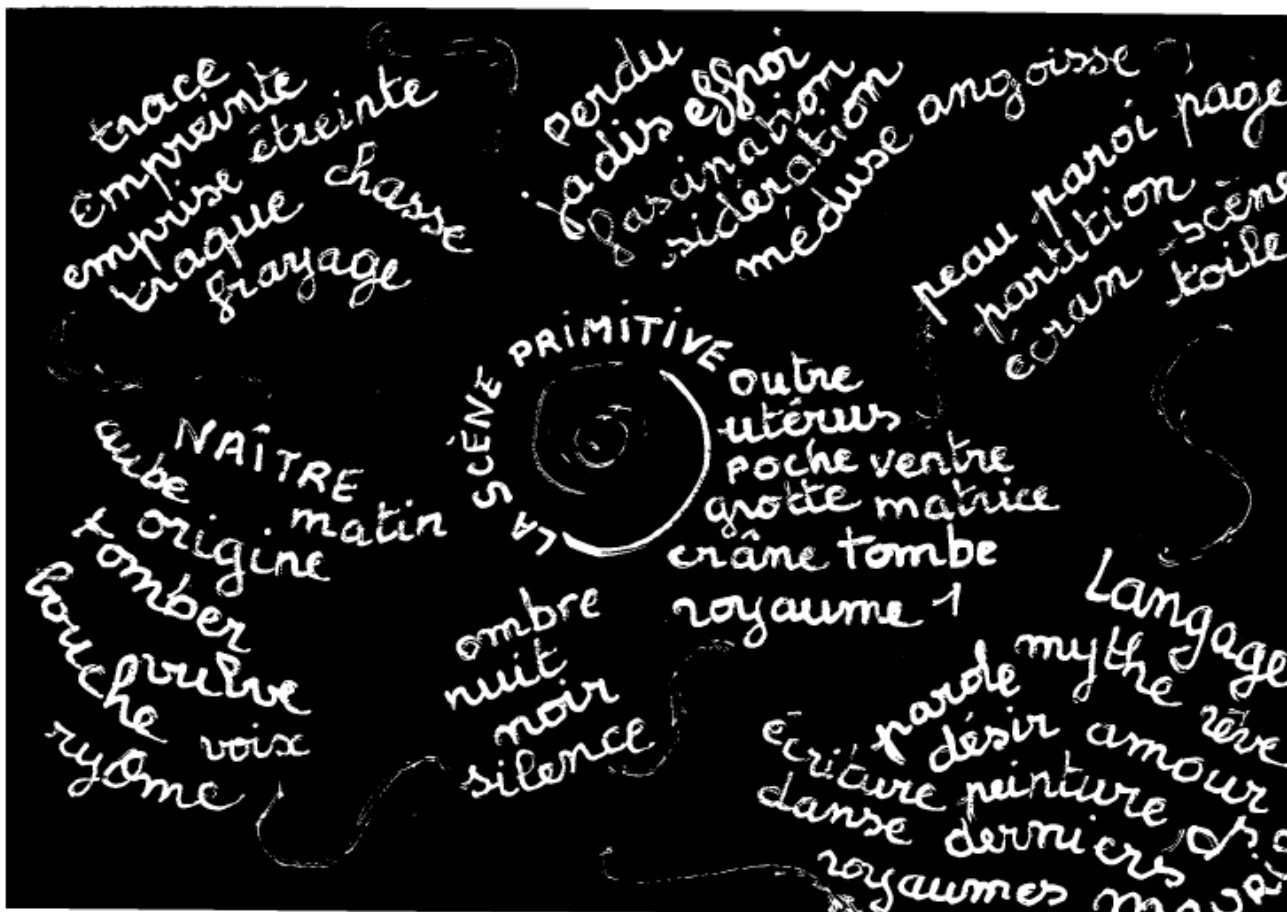 trace
empreinte
emprise étreinte
traque chasse
frayage
perdu
jadis effroi
fascination
sidération
méduse angoisse
peau paroi page
partition
écran scène
toile
LA SCÈNE PRIMITIVE
outre
utérus
poche ventre
grotte matrice
crâne tombe
royaume 1
NAÎTRE
aube matin
origine
tomber
bouche vulve
voix
ryòme
ombre
nuit
noir
silence
Langage
mythe rêve
parole
désir amour
écriture peinture
danse derniers
royaumes